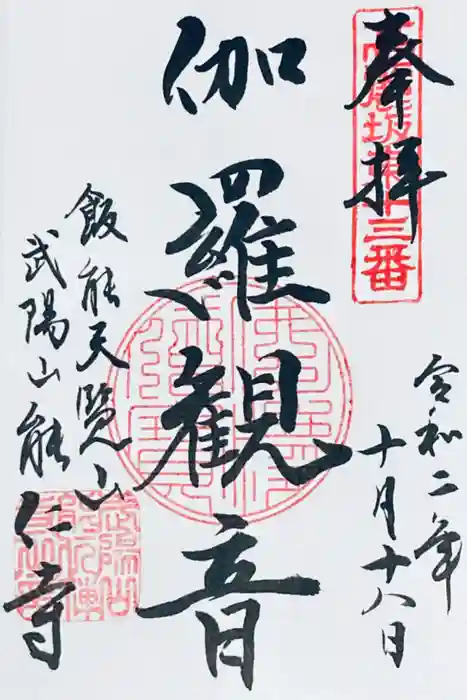 奉拝
令和二年
十月十八日
伽羅觀音
飯能天覧山
武陽山能仁寺
三番